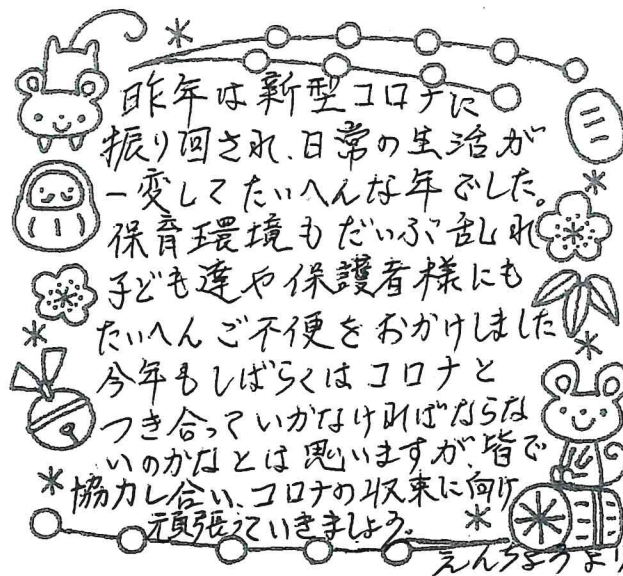 昨年は新型コロナに
振り回され、日常の生活が
一変してたいへんな年でした。
保育環境もだいぶ乱れ
子ども達や保護者様にも
たいへんご不便をおかけしました
今年もしばらくはコロナと
つき合っていかなければならな
いのかなとは思いますが、皆で
協力し合い、コロナの収束に向け
頑張っていきましょう。
えんちょうより